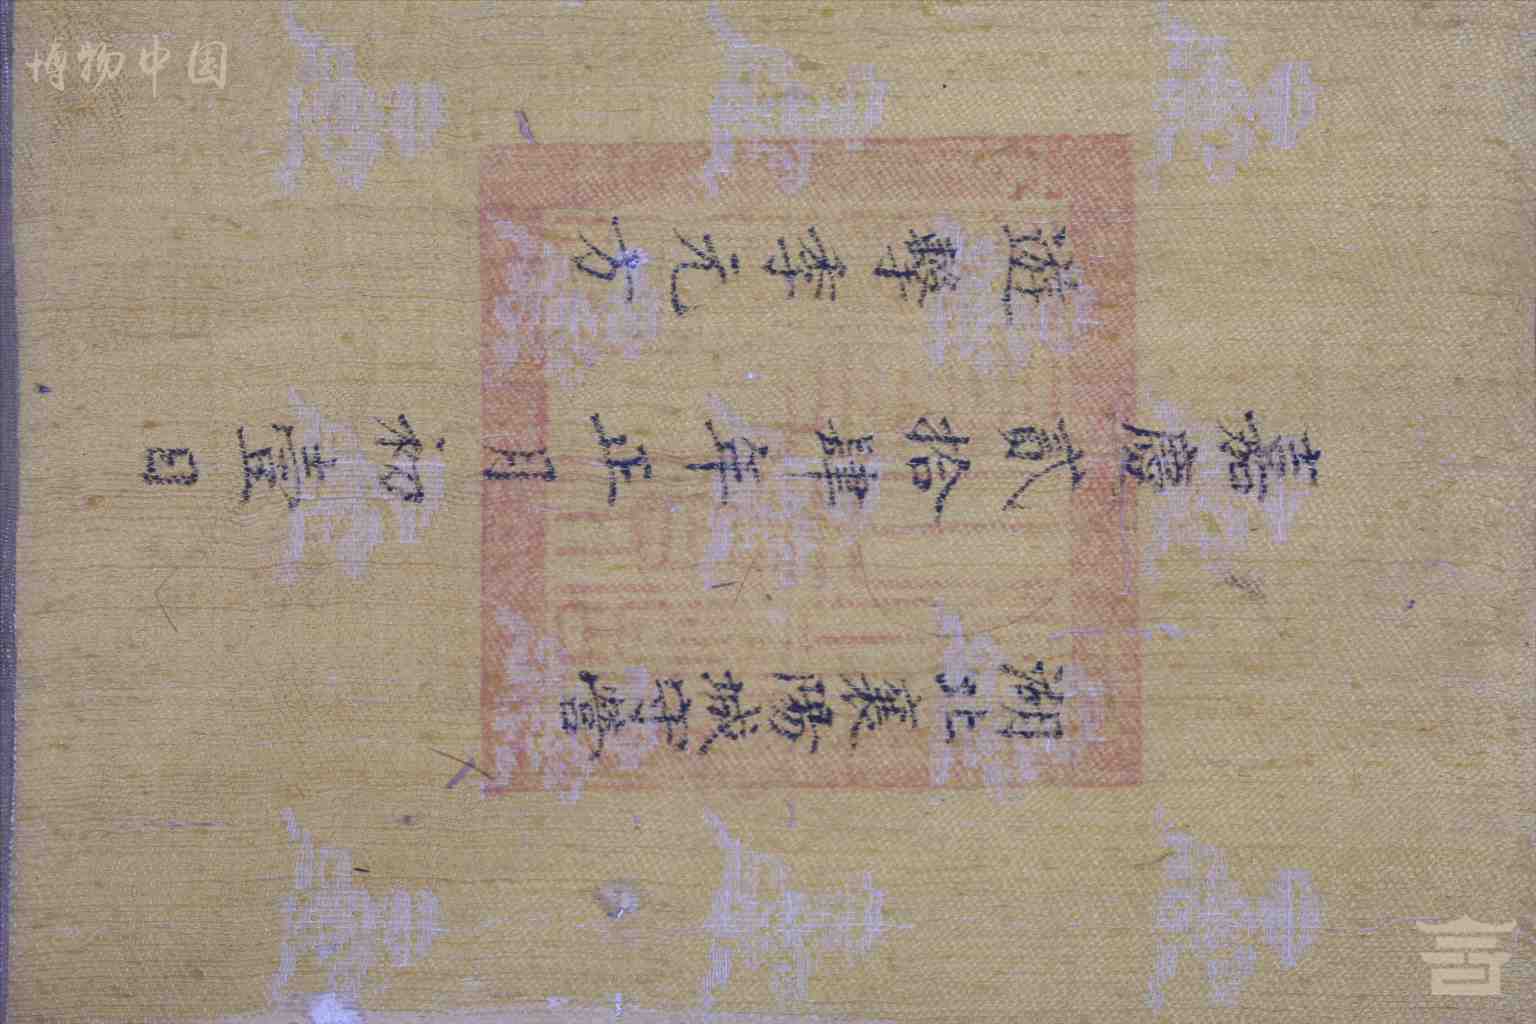 博物中国
湖北襄陽城守營
嘉慶貳拾肆年正月初壹日
遊擊李元方